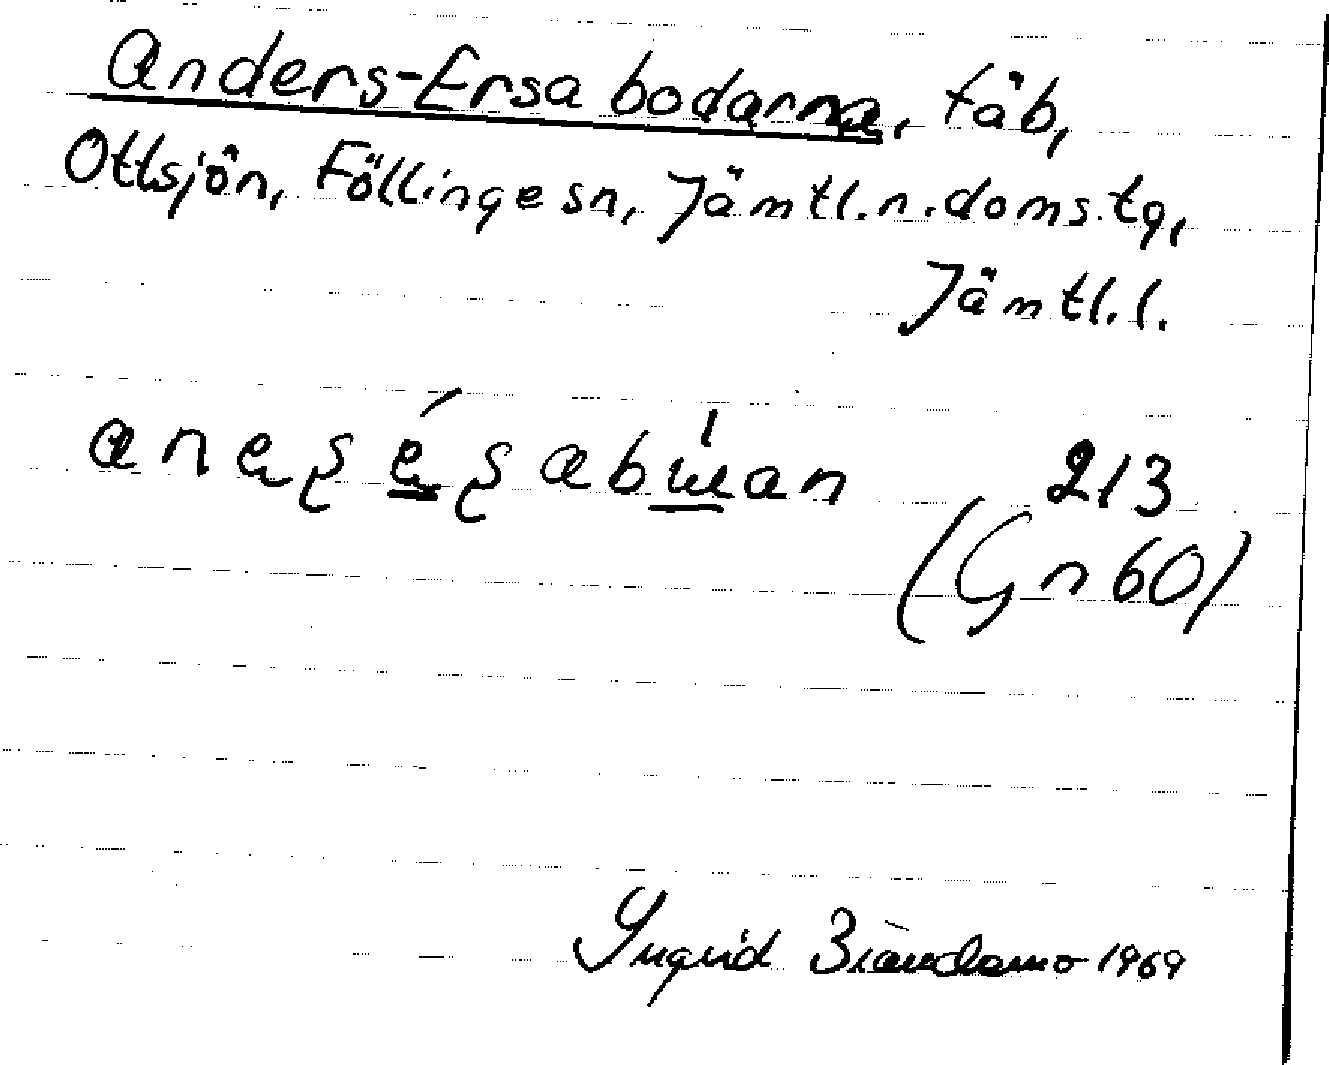 Anders-Ersa bodarna, fäb,
Ottsjön, Föllinge sn, Jämtl.n.doms.tg,
Jämtl.l.
213
(Gn 60)
Ingrid 1969